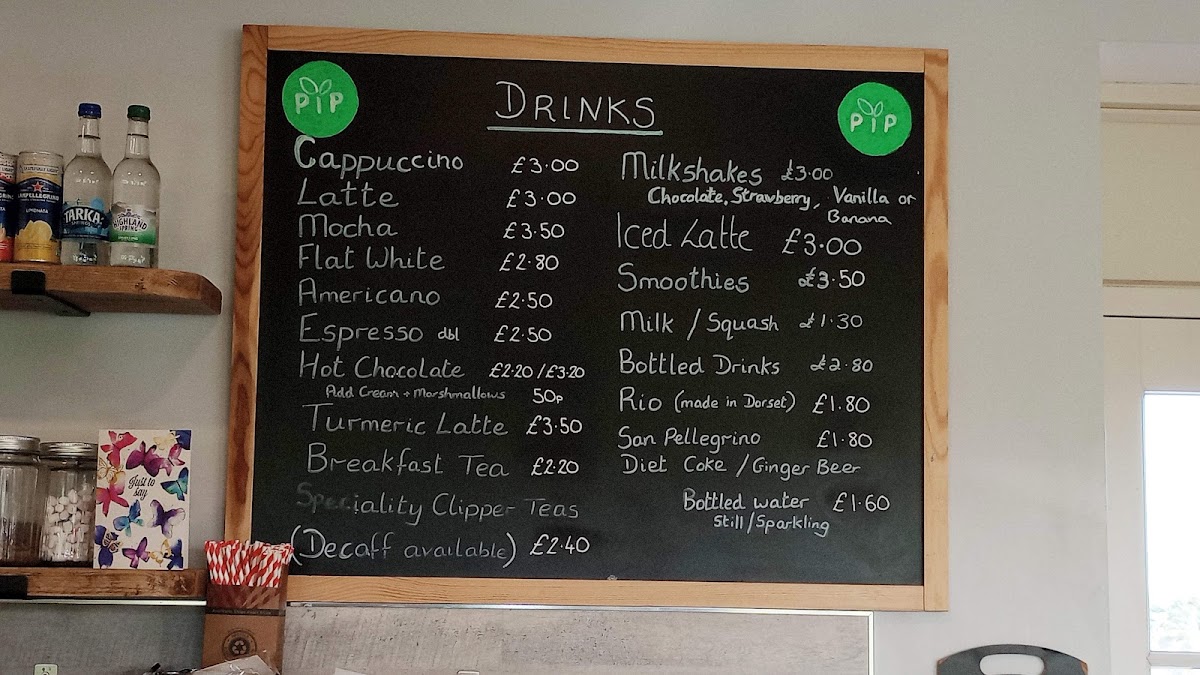 PIP
DRINKS
PIP
Cappuccino £3.00
Latte £3.00
Mocha £3.50
Flat White £2.80
Americano £2.50
Espresso dbl £2.50
Hot Chocolate £2.20/£3.20
Add Cream + Marshmallows 50p
Turmeric Latte £3.50
Breakfast Tea £2.20
Speciality Clipper Teas
(Decaff available) £2.40
Milkshakes £3.00
Chocolate, Strawberry, Vanilla or
Banana
Iced Latte £3.00
Smoothies £3.50
Milk / Squash £1.30
Bottled Drinks £2.80
Rio (made in Dorset) £1.80
San Pellegrino £1.80
Diet Coke / Ginger Beer
Bottled water £1.60
Still/Sparkling
TARKA
SPRINGS
HIGHLAND
SPRING
LIMONATA
Just to
say